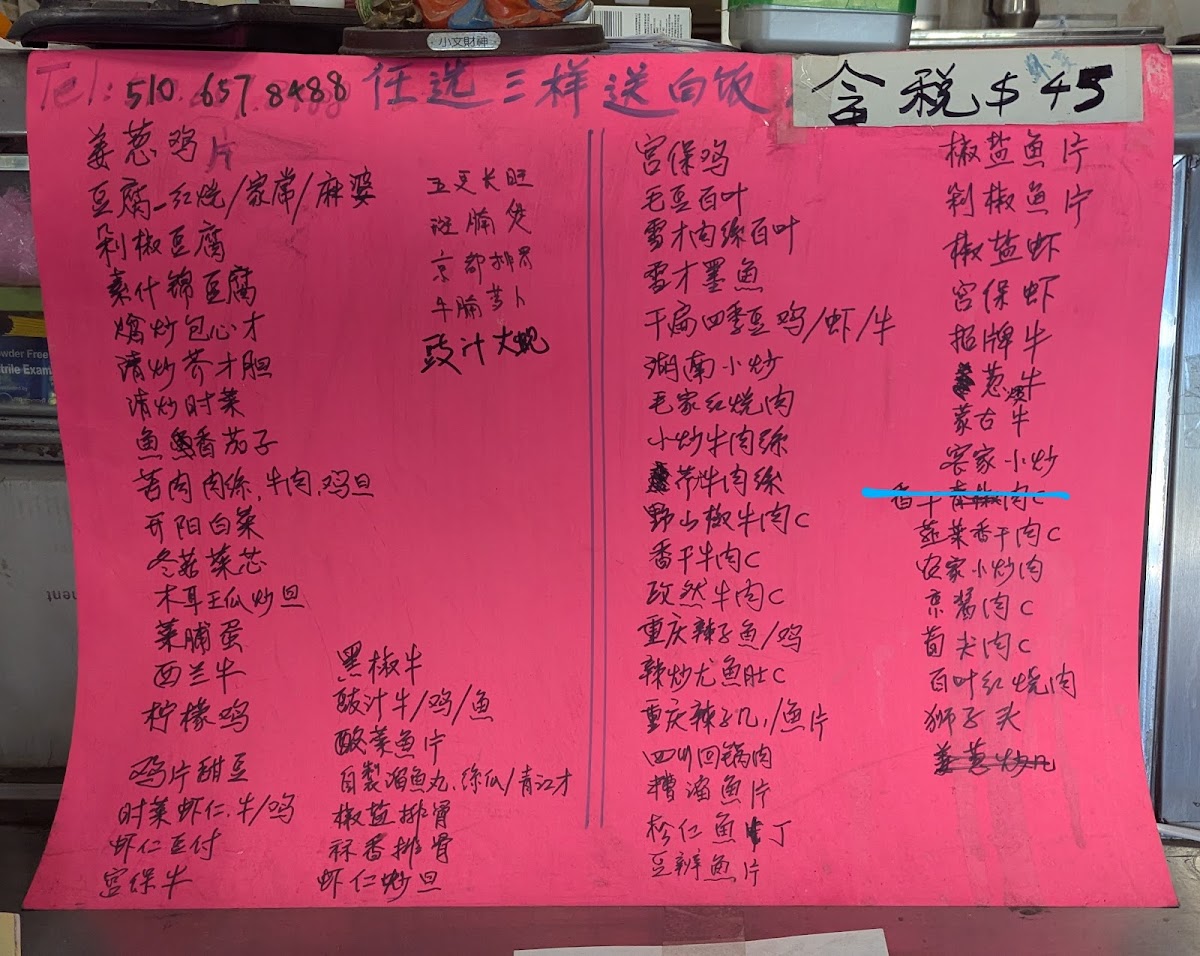 小文財神
Tel: 510.657.8488 任选三样送白饭
含税 $45
姜葱鸡片
豆腐-红烧/家常/麻婆
剁椒豆腐
素什锦豆腐
炝炒包心才
清炒芥才胆
清炒时菜
鱼香茄子
苦肉肉絲,牛肉,鸡旦
开阳白菜
冬菇菜芯
木耳王瓜炒旦
菜脯蛋
西兰牛
柠檬鸡
鸡片甜豆
时菜虾仁.牛/鸡
虾仁豆付
宫保牛
五更长旺
斑腩煲
京都排骨
牛腩萝卜
豉汁大蚬
黑椒牛
豉汁牛/鸡/鱼
酸菜鱼片
自製溜鱼丸.絲瓜/青江才
椒盐排骨
蒜香排骨
虾仁炒旦
宫保鸡
毛豆百叶
雪才肉絲百叶
雪才墨鱼
干扁四季豆鸡/虾/牛
湖南小炒
毛家红烧肉
小炒牛肉絲
芹牛肉絲
野山椒牛肉C
香干牛肉C
孜然牛肉C
重庆辣子鱼/鸡
辣炒尤鱼肚C
重庆辣子/鱼片
四川回锅肉
糟溜鱼片
松仁鱼丁
豆辦鱼片
椒盐鱼片
剁椒鱼片
椒盐虾
宫保虾
招牌牛
葱爆牛
蒙古牛
客家小炒
香干青椒肉C
韮菜香干肉C
农家小炒肉
京酱肉C
筍尖肉C
百叶红烧肉
狮子头
姜葱炒
wder Free
trile Exam